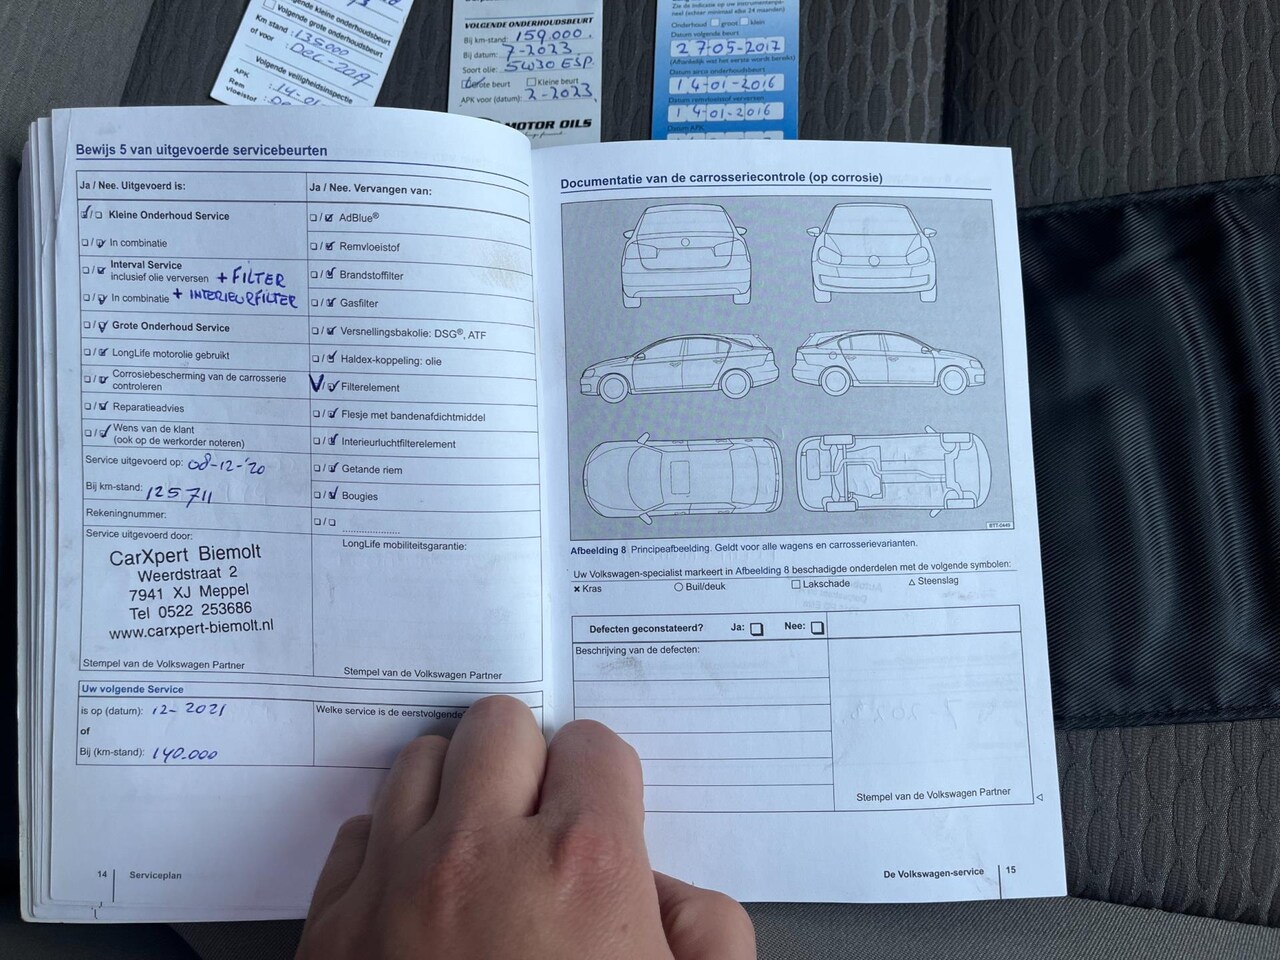 Volgende grote onderhoudsbeurt
Km stand : 135000
of voor : Dec-2019
Volgende veiligheidsinspectie
APK
Rem
vloeistof
VOLGENDE ONDERHOUDSBEURT
Bij km-stand: 159.000.
Bij datum: 7-2023
Soort olie: 5W30 ESP.
Grote beurt Kleine beurt
APK voor (datum): 2-2023
MOTOR OILS
Onderhoud groot klein
Datum volgende beurt
27-05-2017
(Afhankelijk wat het eerste wordt bereikt)
14-01-2016
14-01-2016
Datum APK
Bewijs 5 van uitgevoerde servicebeurten
Ja / Nee. Uitgevoerd is:
Kleine Onderhoud Service
In combinatie
Interval Service
inclusief olie verversen + FILTER
In combinatie + INTERIEURFILTER
Grote Onderhoud Service
LongLife motorolie gebruikt
Corrosiebescherming van de carrosserie
controleren
Reparatieadvies
Wens van de klant
(ook op de werkorder noteren)
Service uitgevoerd op: 08-12-'20
Bij km-stand: 125711
Rekeningnummer:
Service uitgevoerd door:
CarXpert Biemolt
Weerdstraat 2
7941 XJ Meppel
Tel 0522 253686
www.carxpert-biemolt.nl
Stempel van de Volkswagen Partner
Ja / Nee. Vervangen van:
AdBlue®
Remvloeistof
Brandstoffilter
Gasfilter
Versnellingsbakolie: DSG®, ATF
Haldex-koppeling: olie
Filterelement
Flesje met bandenafdichtmiddel
Interieurluchtfilterelement
Getande riem
Bougies
LongLife mobiliteitsgarantie:
Stempel van de Volkswagen Partner
Uw volgende Service
is op (datum): 12-2021
of
Bij (km-stand): 140.000
Welke service is de eerstvolgende
14 Serviceplan
Documentatie van de carrosseriecontrole (op corrosie)
BTT-0446
Afbeelding 8 Principeafbeelding. Geldt voor alle wagens en carrosserievarianten.
Uw Volkswagen-specialist markeert in Afbeelding 8 beschadigde onderdelen met de volgende symbolen:
Kras Buil/deuk Lakschade Steenslag
Defecten geconstateerd? Ja: Nee:
Beschrijving van de defecten:
Stempel van de Volkswagen Partner
De Volkswagen-service 15